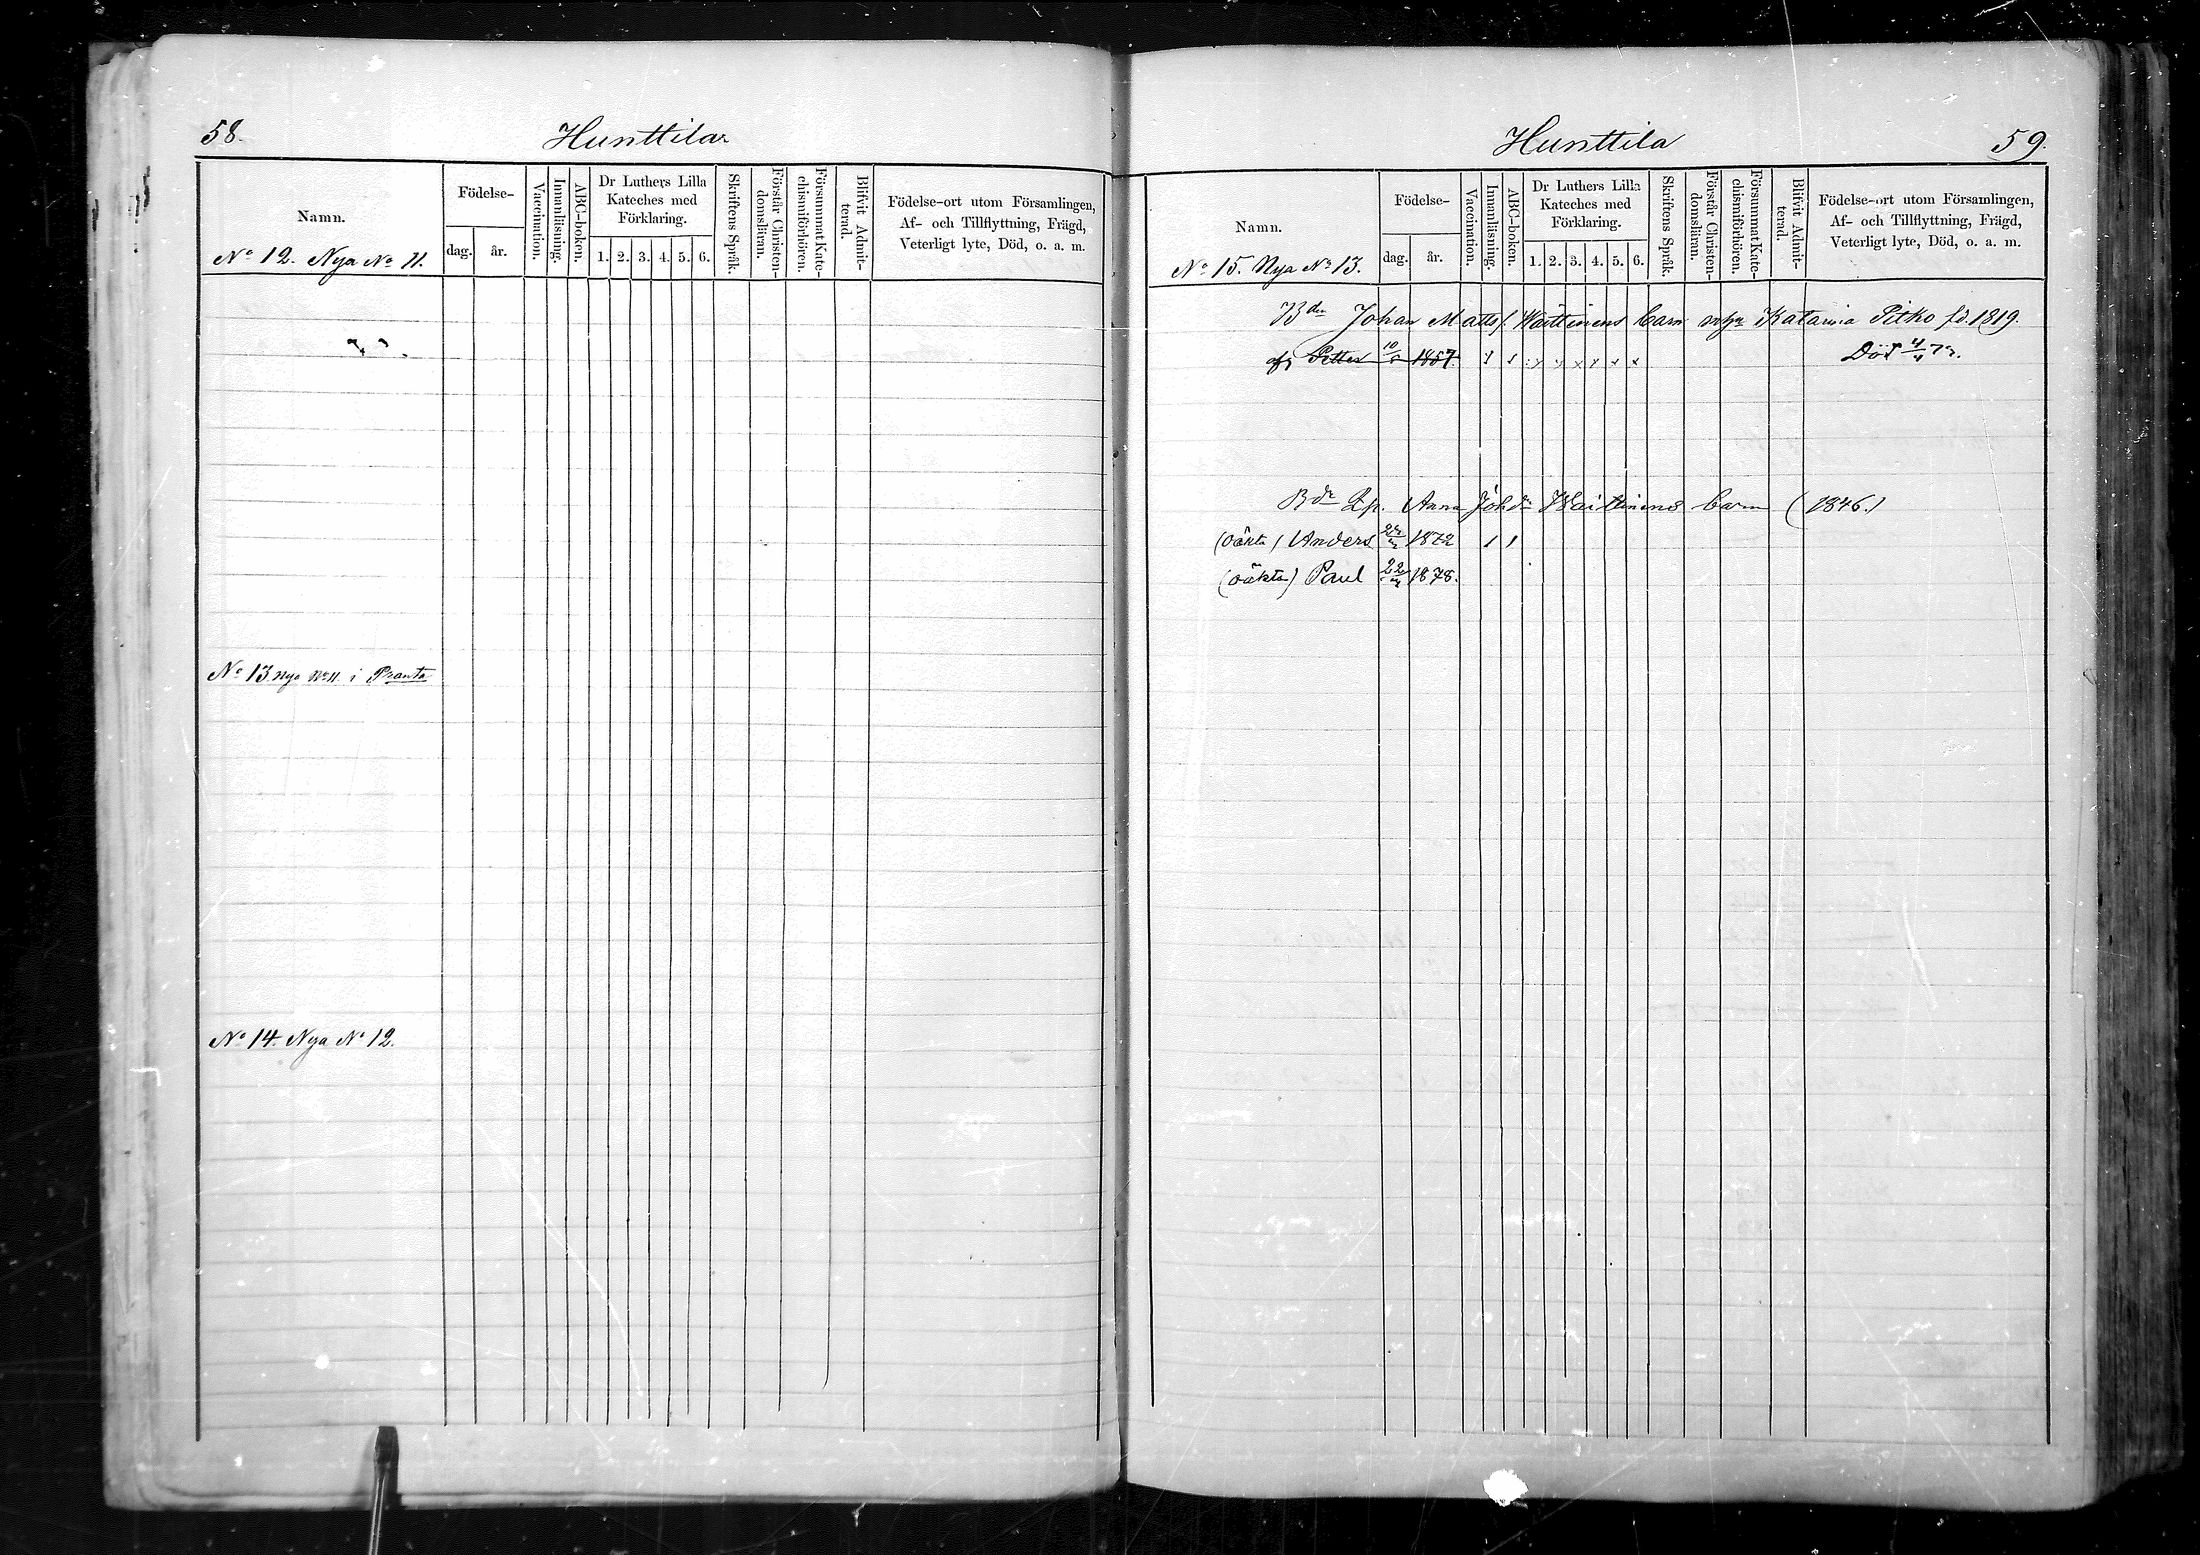 58.
Hunttila
Namn.
Födelse-
dag.
år.
Vaccination.
Innanläsning.
ABC-boken.
Dr Luthers Lilla
Kateches med
Förklaring.
1. 2. 3. 4. 5. 6.
Skriftens Språk.
Förstår Christen-
domsläran.
Försummat Kate-
chismiförhören.
Blifvit Admit-
terad.
Födelse-ort utom Församlingen,
Af- och Tillflyttning, Frägd,
Veterligt lyte, Död, o. a. m.
No 12. Nya No 11.
No 13 Nya No 11. i Pranta
No 14. Nya No 12.
Hunttila
59.
Namn.
Födelse-
dag.
år.
Vaccination.
Innanläsning.
ABC-boken.
Dr Luthers Lilla
Kateches med
Förklaring.
1. 2. 3. 4. 5. 6.
Skriftens Språk.
Förstår Christen-
domsläran.
Försummat Kate-
chismiförhören.
Blifvit Admit-
terad.
Födelse-ort utom Församlingen,
Af- och Tillflyttning, Frägd,
Veterligt lyte, Död, o. a. m.
No 15. Nya No 13.
Bdn Johan Matts s. Waittinens barn Katarina Pitko fd. 1819.
Petter 1857. x x x x x x Död
Bdr Lp. Anna Johdr Waittinens barn (1846.)
(oäkta) Anders 1872 1 1
(oäkta) Paul 22 1878.